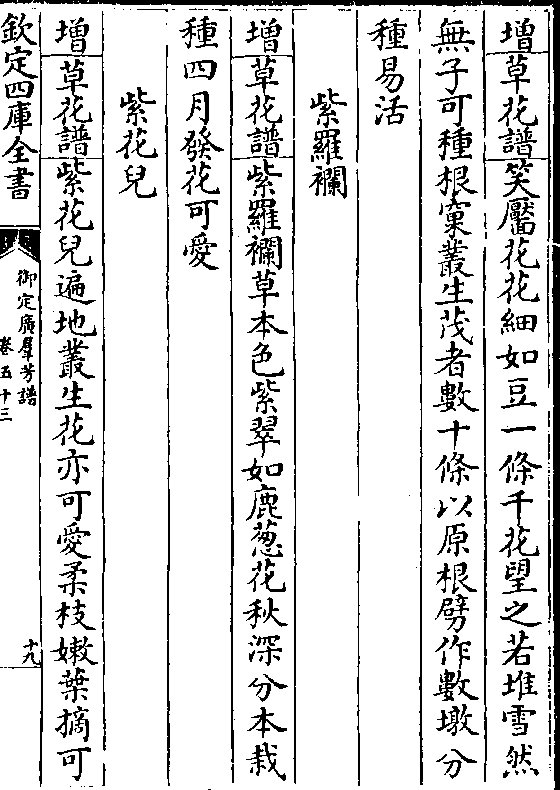 增草花譜笑靨花花細如豆一條千花望之若堆雪然
無子可種根窠叢生茂者數十條以原根劈作數墩分
種易活
紫羅襴
增草花譜紫羅襴草本色紫翠如鹿葱花秋深分本栽
種四月發花可愛
紫花兒
增草花譜紫花兒遍地叢生花亦可愛柔枝嫩葉摘可
欽定四庫全書
御定廣羣芳譜
卷五十三
十九